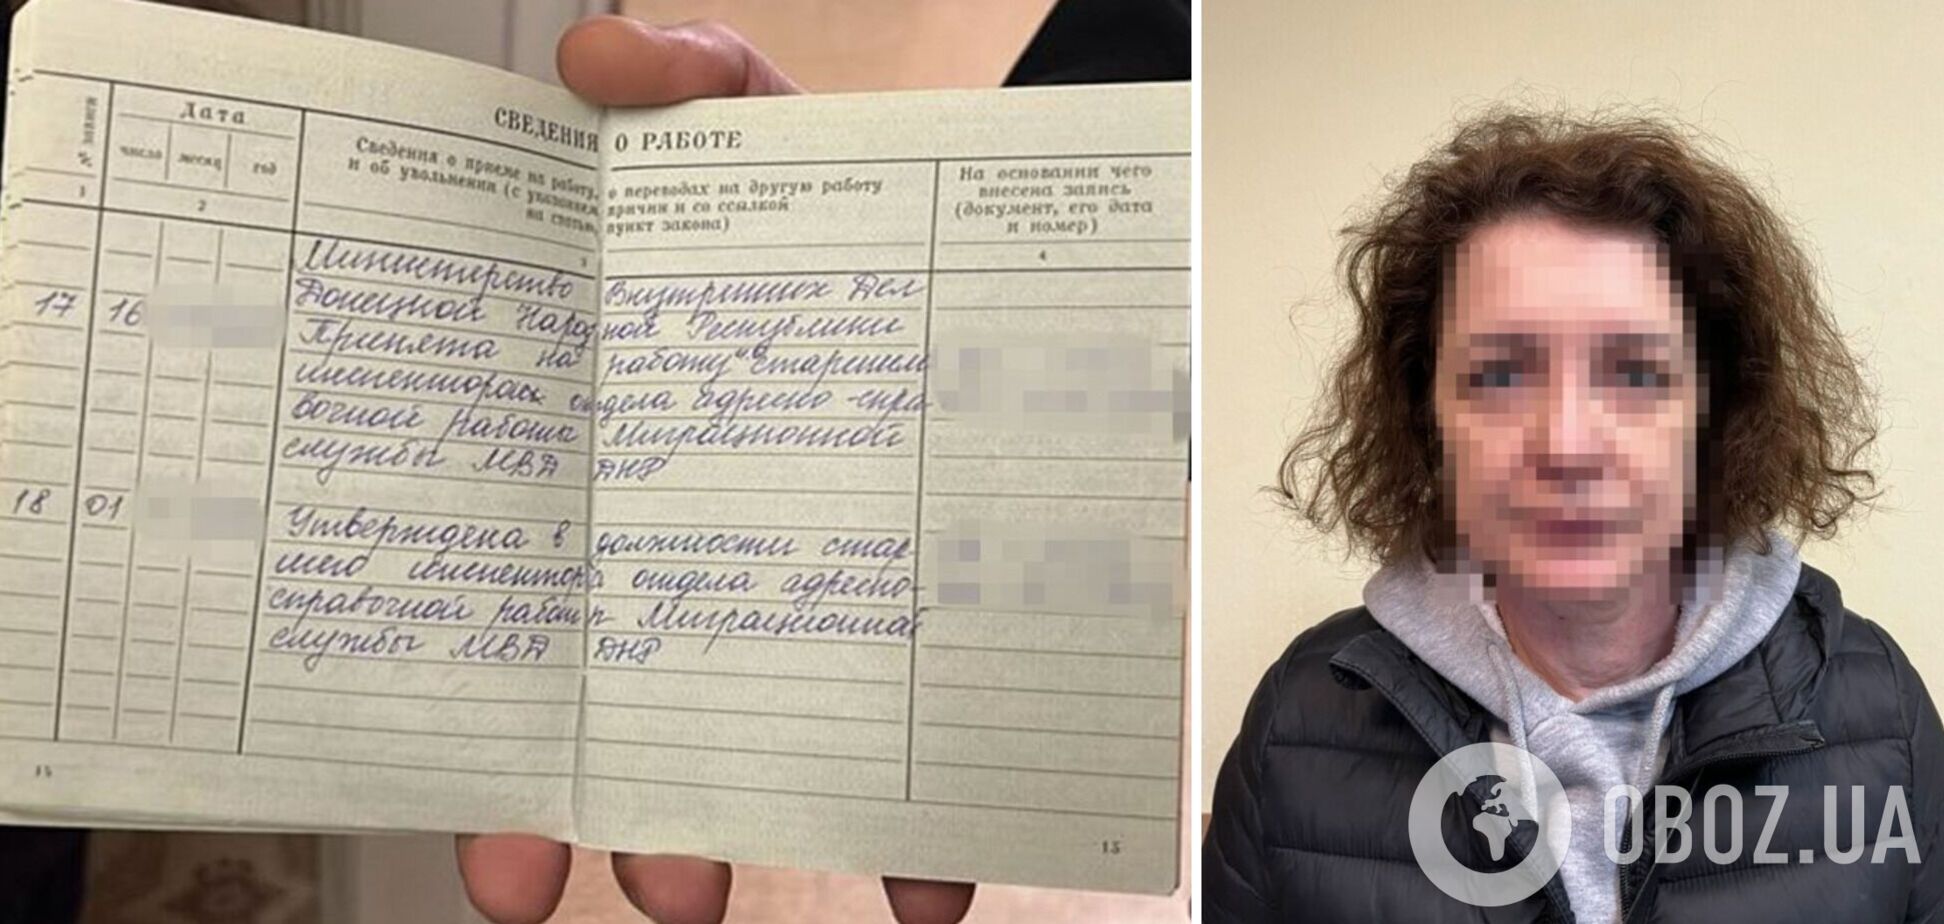 СВЕДЕНИЯ О РАБОТЕ
№ записи
Дата
число месяц год
Сведения о приеме на работу, о переводах на другую работу
и об увольнении (с указанием причин и со ссылкой
на статью, пункт закона)
На основании чего
внесена запись
(документ, его дата
и номер)
1 2 3 4
Министерство Внутренних Дел
Донецкой Народной Республики
17 16 Принята на работу "старшим
инспектором отдела адресно-спра
вочной работы Миграционной
службы МВД ДНР
18 01 Утверждена в должности стар
шего инспектора отдела адресно-
справочной работы Миграционной
службы МВД ДНР
14
15
OBOZ.UA